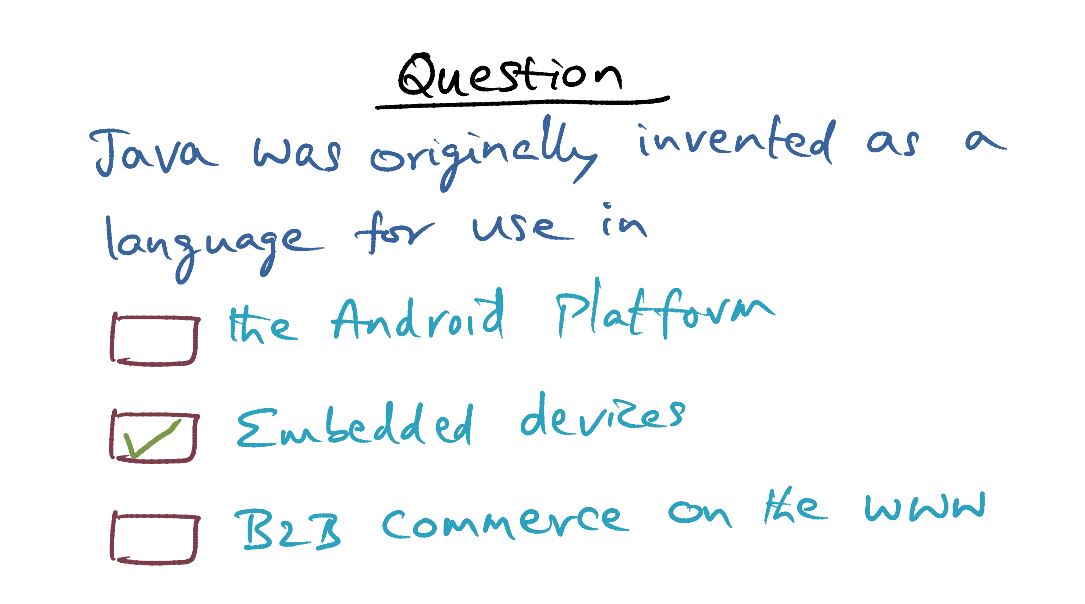 Question
Java was originally invented as a
language for use in
the Android Platform
Embedded devices
B2B Commerce on the WWW